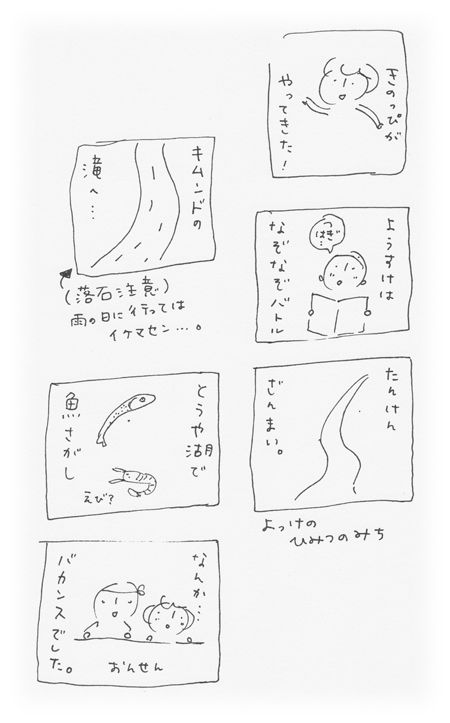 きのっぴが
やってきた！
ようすけは
つぎ
はぎ…
なぞなぞバトル
たんけん
ざんまい。
よっけの
ひみつのみち
キムンドの
滝へ…
(落石注意)
雨の日に行っては
イケマセン…。
とうや湖で
魚さがし
えび？
なんか…
バカンスでした。
おんせん